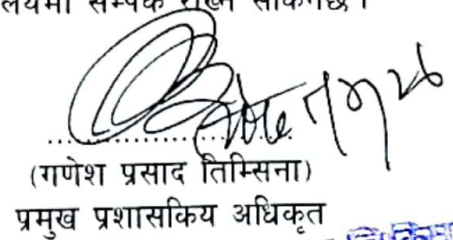 सम्पर्क राख्न सकिनेछ ।
(गणेश प्रसाद तिम्सिना)
प्रमुख प्रशासकिय अधिकृत